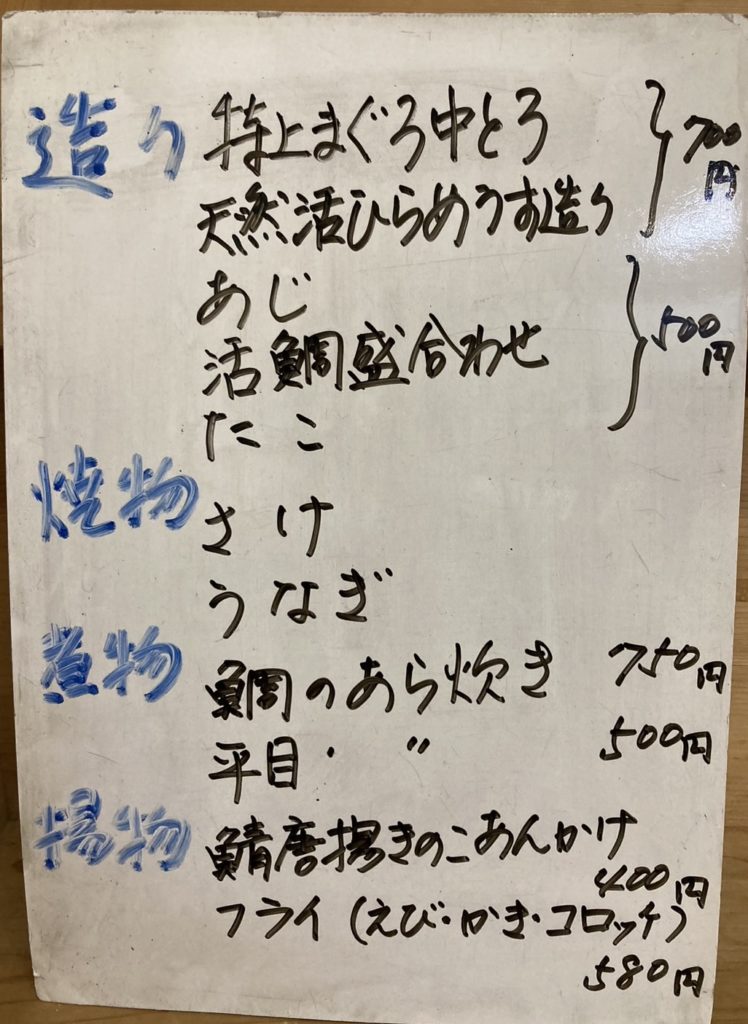 造り 特上まぐろ中とろ
天然活ひらめうす造り
700円
あじ
活鯛盛合わせ
たこ
500円
焼物 さけ
うなぎ
煮物 鯛のあら炊き 750円
平目・ 〃 500円
揚物 鯖唐揚きのこあんかけ
400円
フライ(えび・かき・コロッケ)
580円